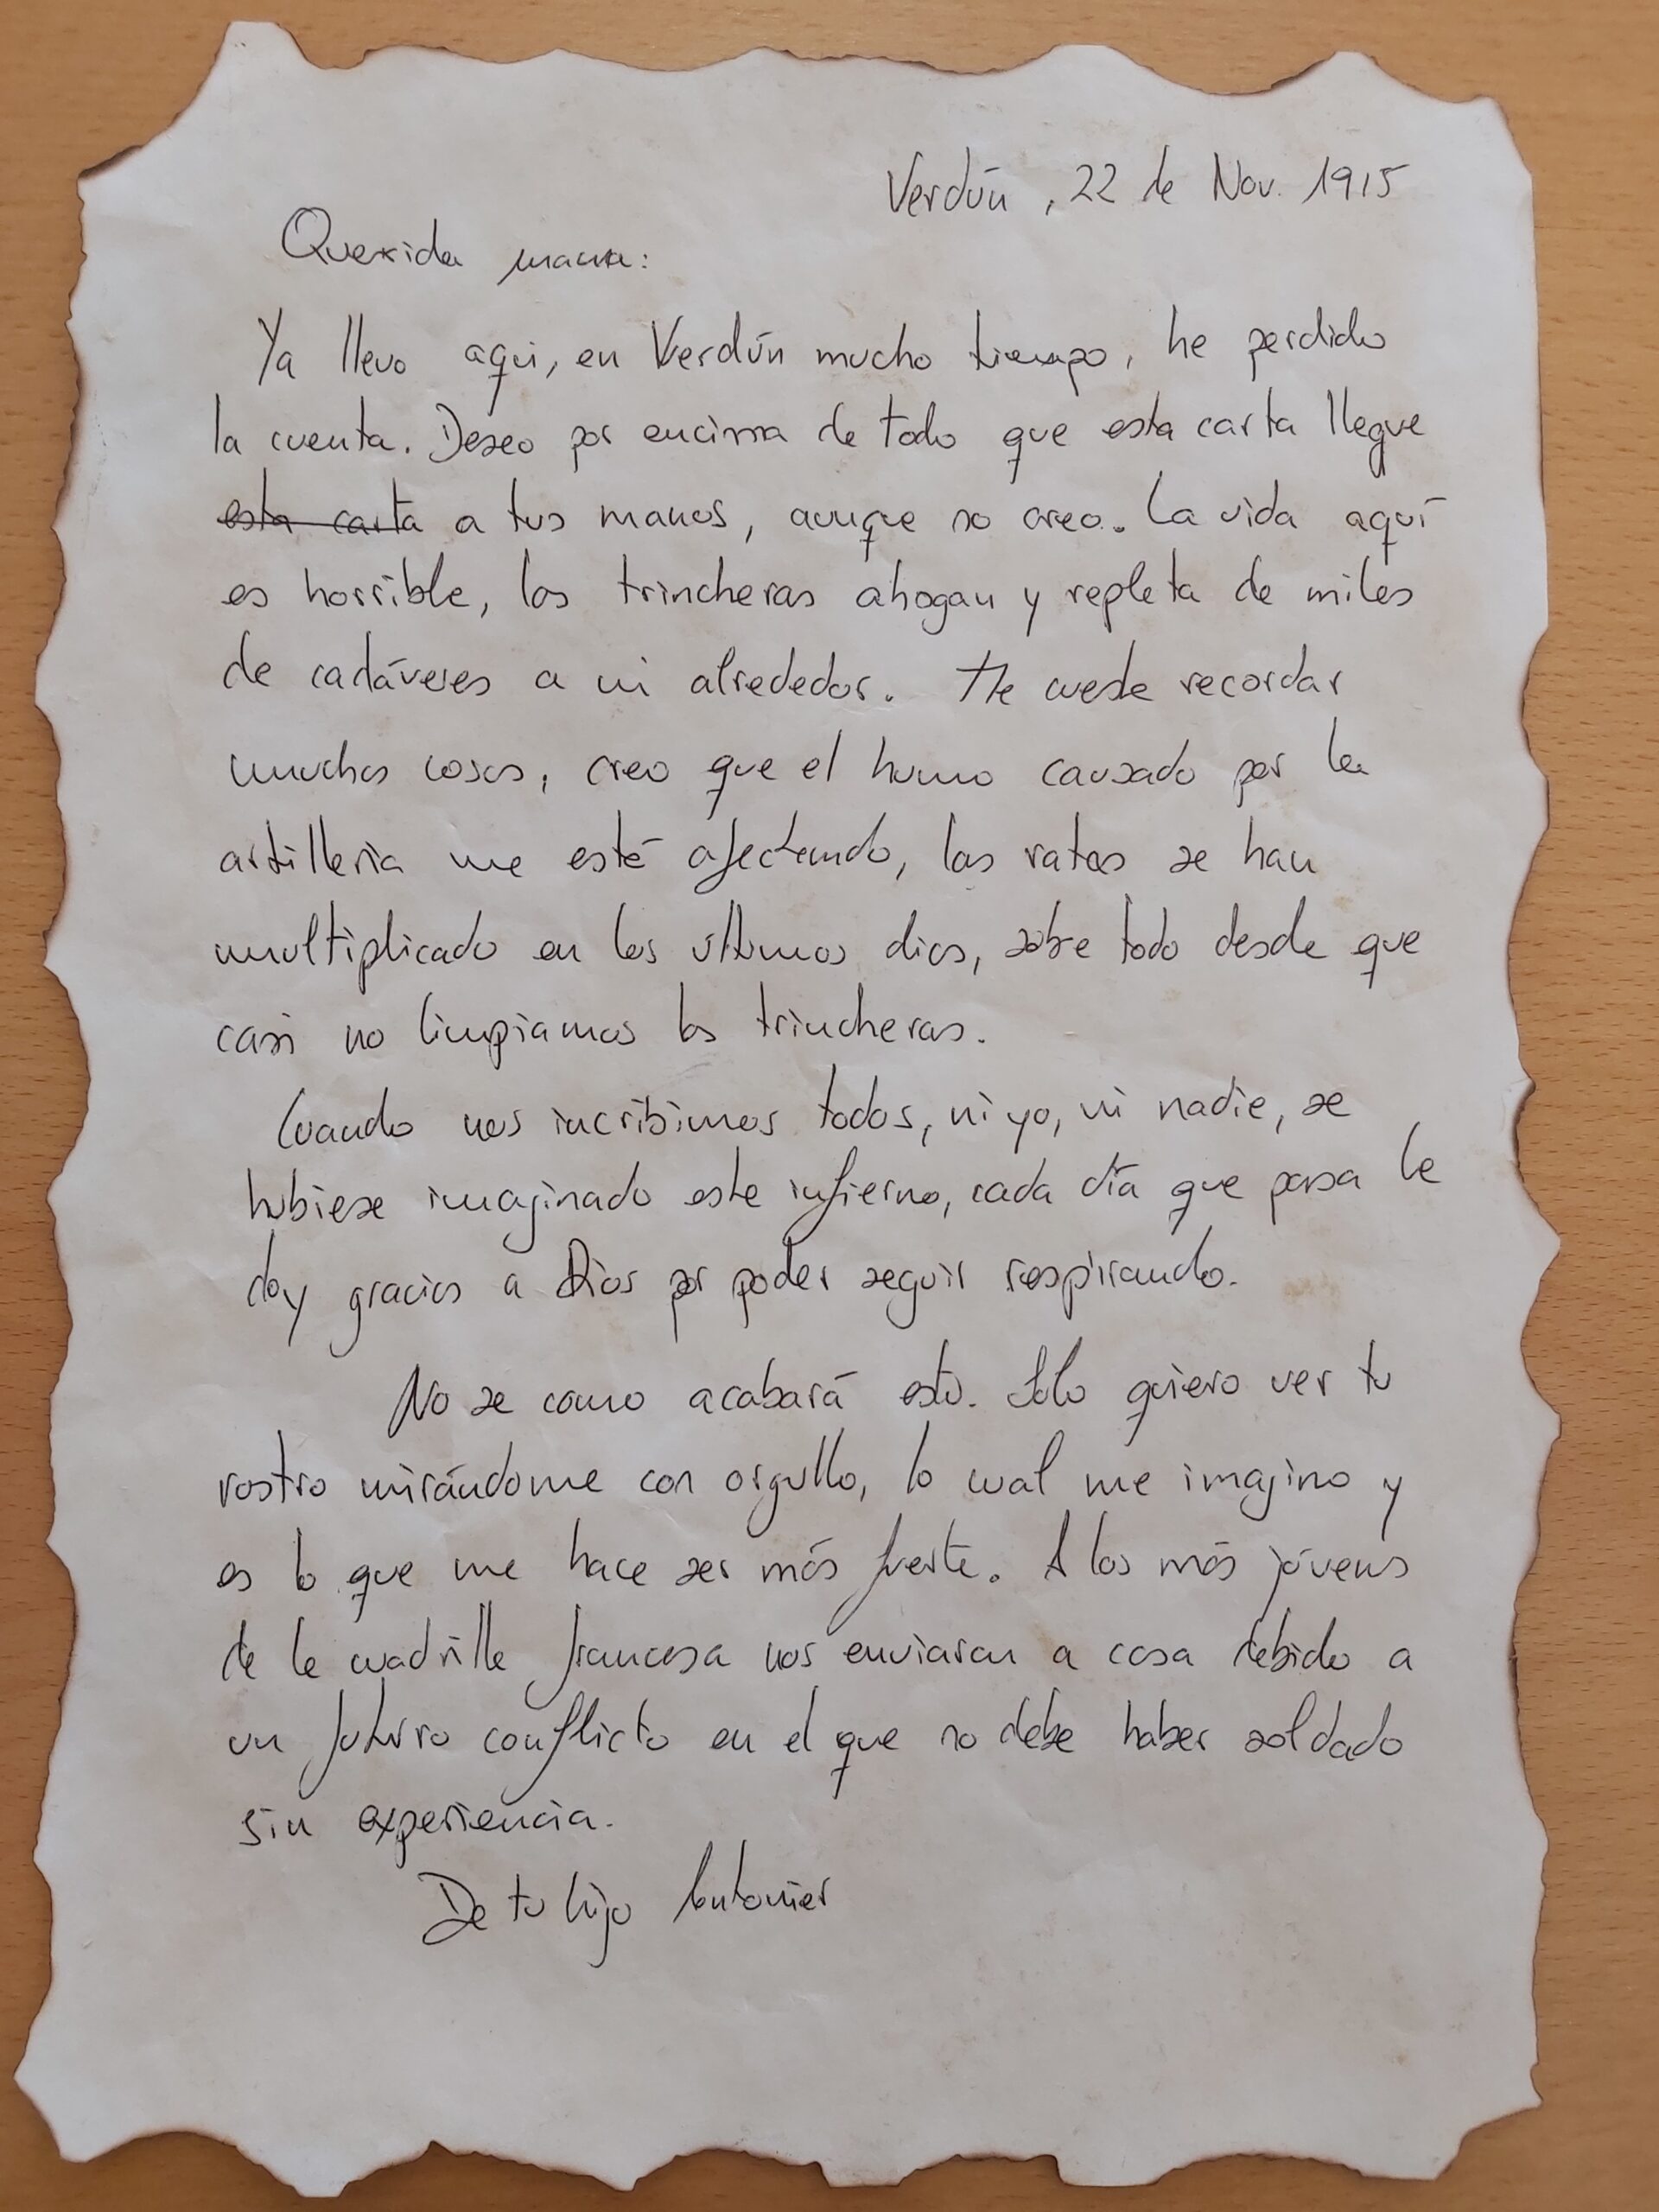 Verdún, 22 de Nov. 1915
Querida mama:
Ya llevo aqui, en Verdún mucho tiempo, he perdido
la cuenta. Deseo por encima de todo que esta carta llegue
esta carta a tus manos, aunque no creo. La vida aquí
es horrible, las trincheras ahogan y repleta de miles
de cadáveres a mi alrededor. Me cueste recordar
muchas cosas, creo que el humo causado por la
artilleria me esté afectando, las ratas se han
multiplicado en los últimos dias, sobre todo desde que
casi no limpiamos las trincheras.
Cuando nos incribimos todos, ni yo, ni nadie, se
hubiese imaginado este infierno, cada día que pasa le
doy gracias a Dios por poder seguir respirando.
No se como acabará esto. Solo quiero ver tu
rostro mirándome con orgullo, lo cual me imagino y
es lo que me hace ser más fuerte. A los más jóvenes
de la cuadrilla francesa nos enviaran a casa debido a
un futuro conflicto en el que no debe haber soldado
sin experiencia.
De tu hijo